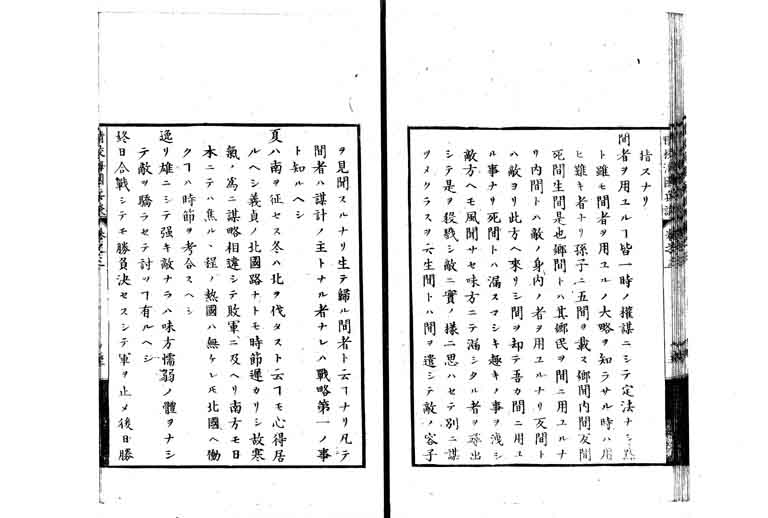 捨スナリ
間者ヲ用ユルヿ皆一時ノ権謀ニシテ定法ナシ然
ト雖モ間者ヲ用ユルノ大略ヲ知ラサル時ハ用
ヒ雖キ者ナリ孫子ニ五間ヲ載ス郷間内間反間
死間生間是也郷間トハ其郷民ヲ間ニ用ユルナ
リ内間トハ敵ノ身内ノ者ヲ用ユルナリ反間ト
ハ敵ヨリ此方ヘ來リシ間ヲ却テ吾カ間ニ用ユ
ル事ナリ死間トハ漏スマシキ趣キノ事ヲ洩シ
敵方ヘモ風聞サセ味方ニテ漏シタル者ヲ尋出
シテ是ヲ殺戮シ敵ニ實ノ様ニ思ハセテ別ニ謀
ヲメクラスヲ云生間トハ間ヲ遣シテ敵ノ容子
ヲ見聞スルナリ生テ歸ル間者ト云ヿナリ凡テ
間者ハ謀計ノ主トナル者ナレハ戰略第一ノ事
ト知ルヘシ
夏ハ南ヲ征セス冬ハ北ヲ伐タスト云ヿモ心得居
ルヘシ義貞ノ北國路ナトモ時節遲カリシ故寒
氣ノ為ニ謀略相違シテ敗軍ニ及ヘリ南方モ日
本ニテハ焦ルヽ程ノ熱國ハ無ケレモ北國ヘ働
クヿハ時節ヲ考合スヘシ
逸リ雄ニシテ强キ敵ナラハ味方懦弱ノ體ヲナシ
テ敵ヲ驕ラセテ討ツヿ有ルヘシ
終日合戰シテモ勝負決セスシテ軍ヲ止メ後日勝